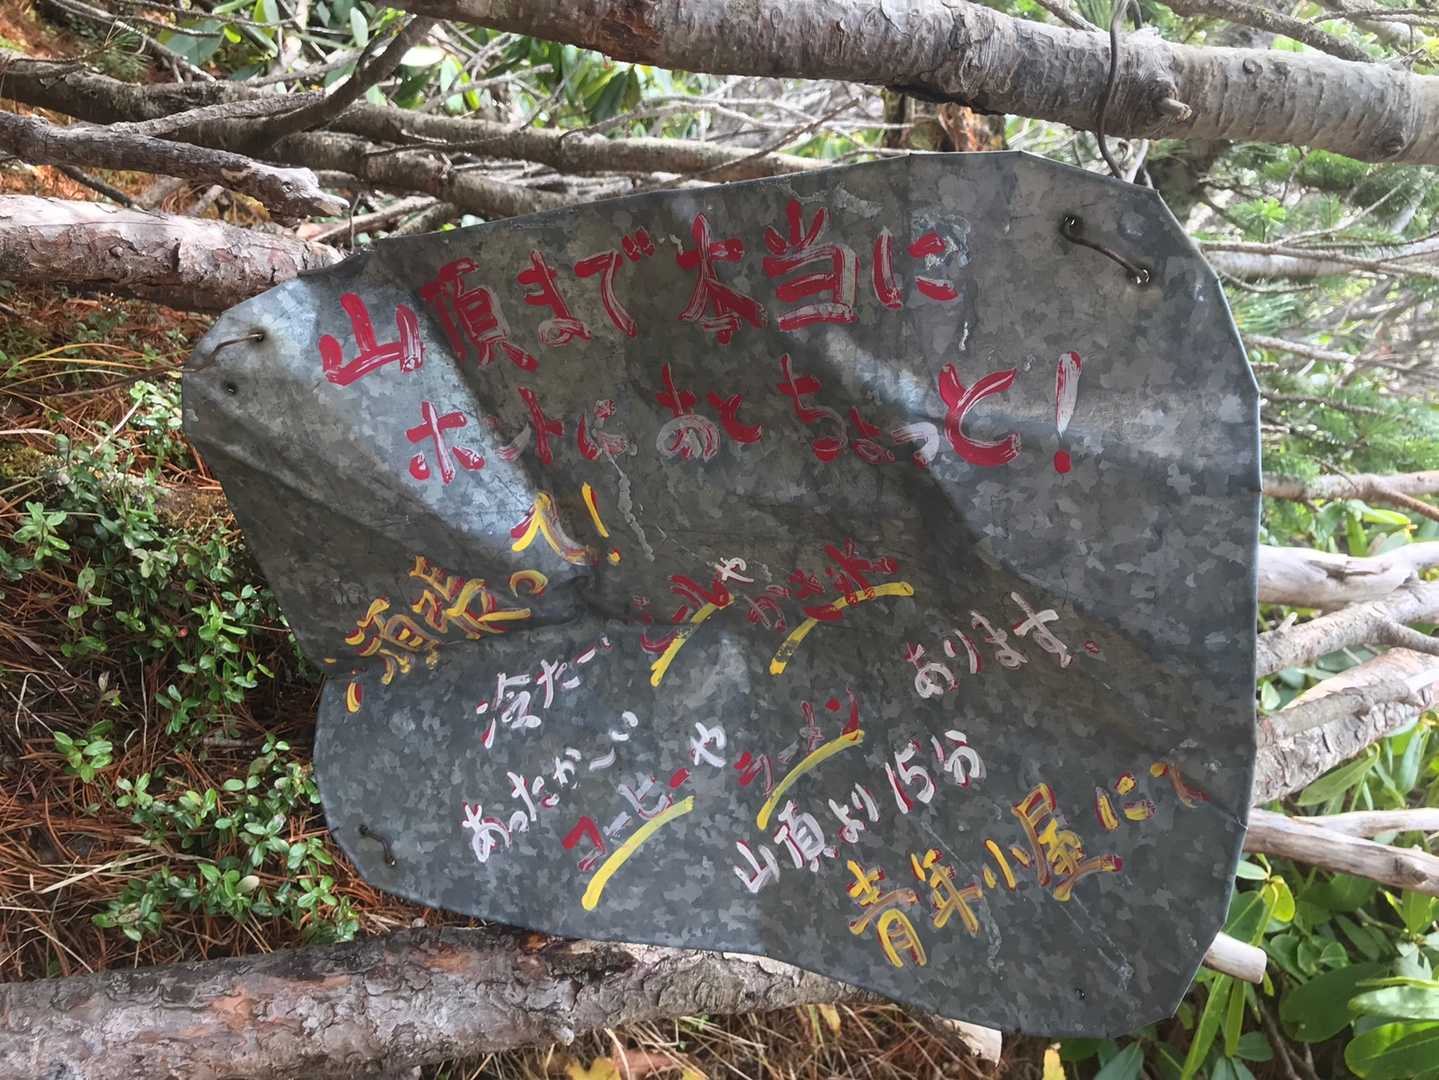 山頂まで本当に
ホントにあとちょっと!
頑張って!
冷たーい ビールやかき氷
あったかーい コーヒーやラーメン あります。
山頂より15分
青年小屋に